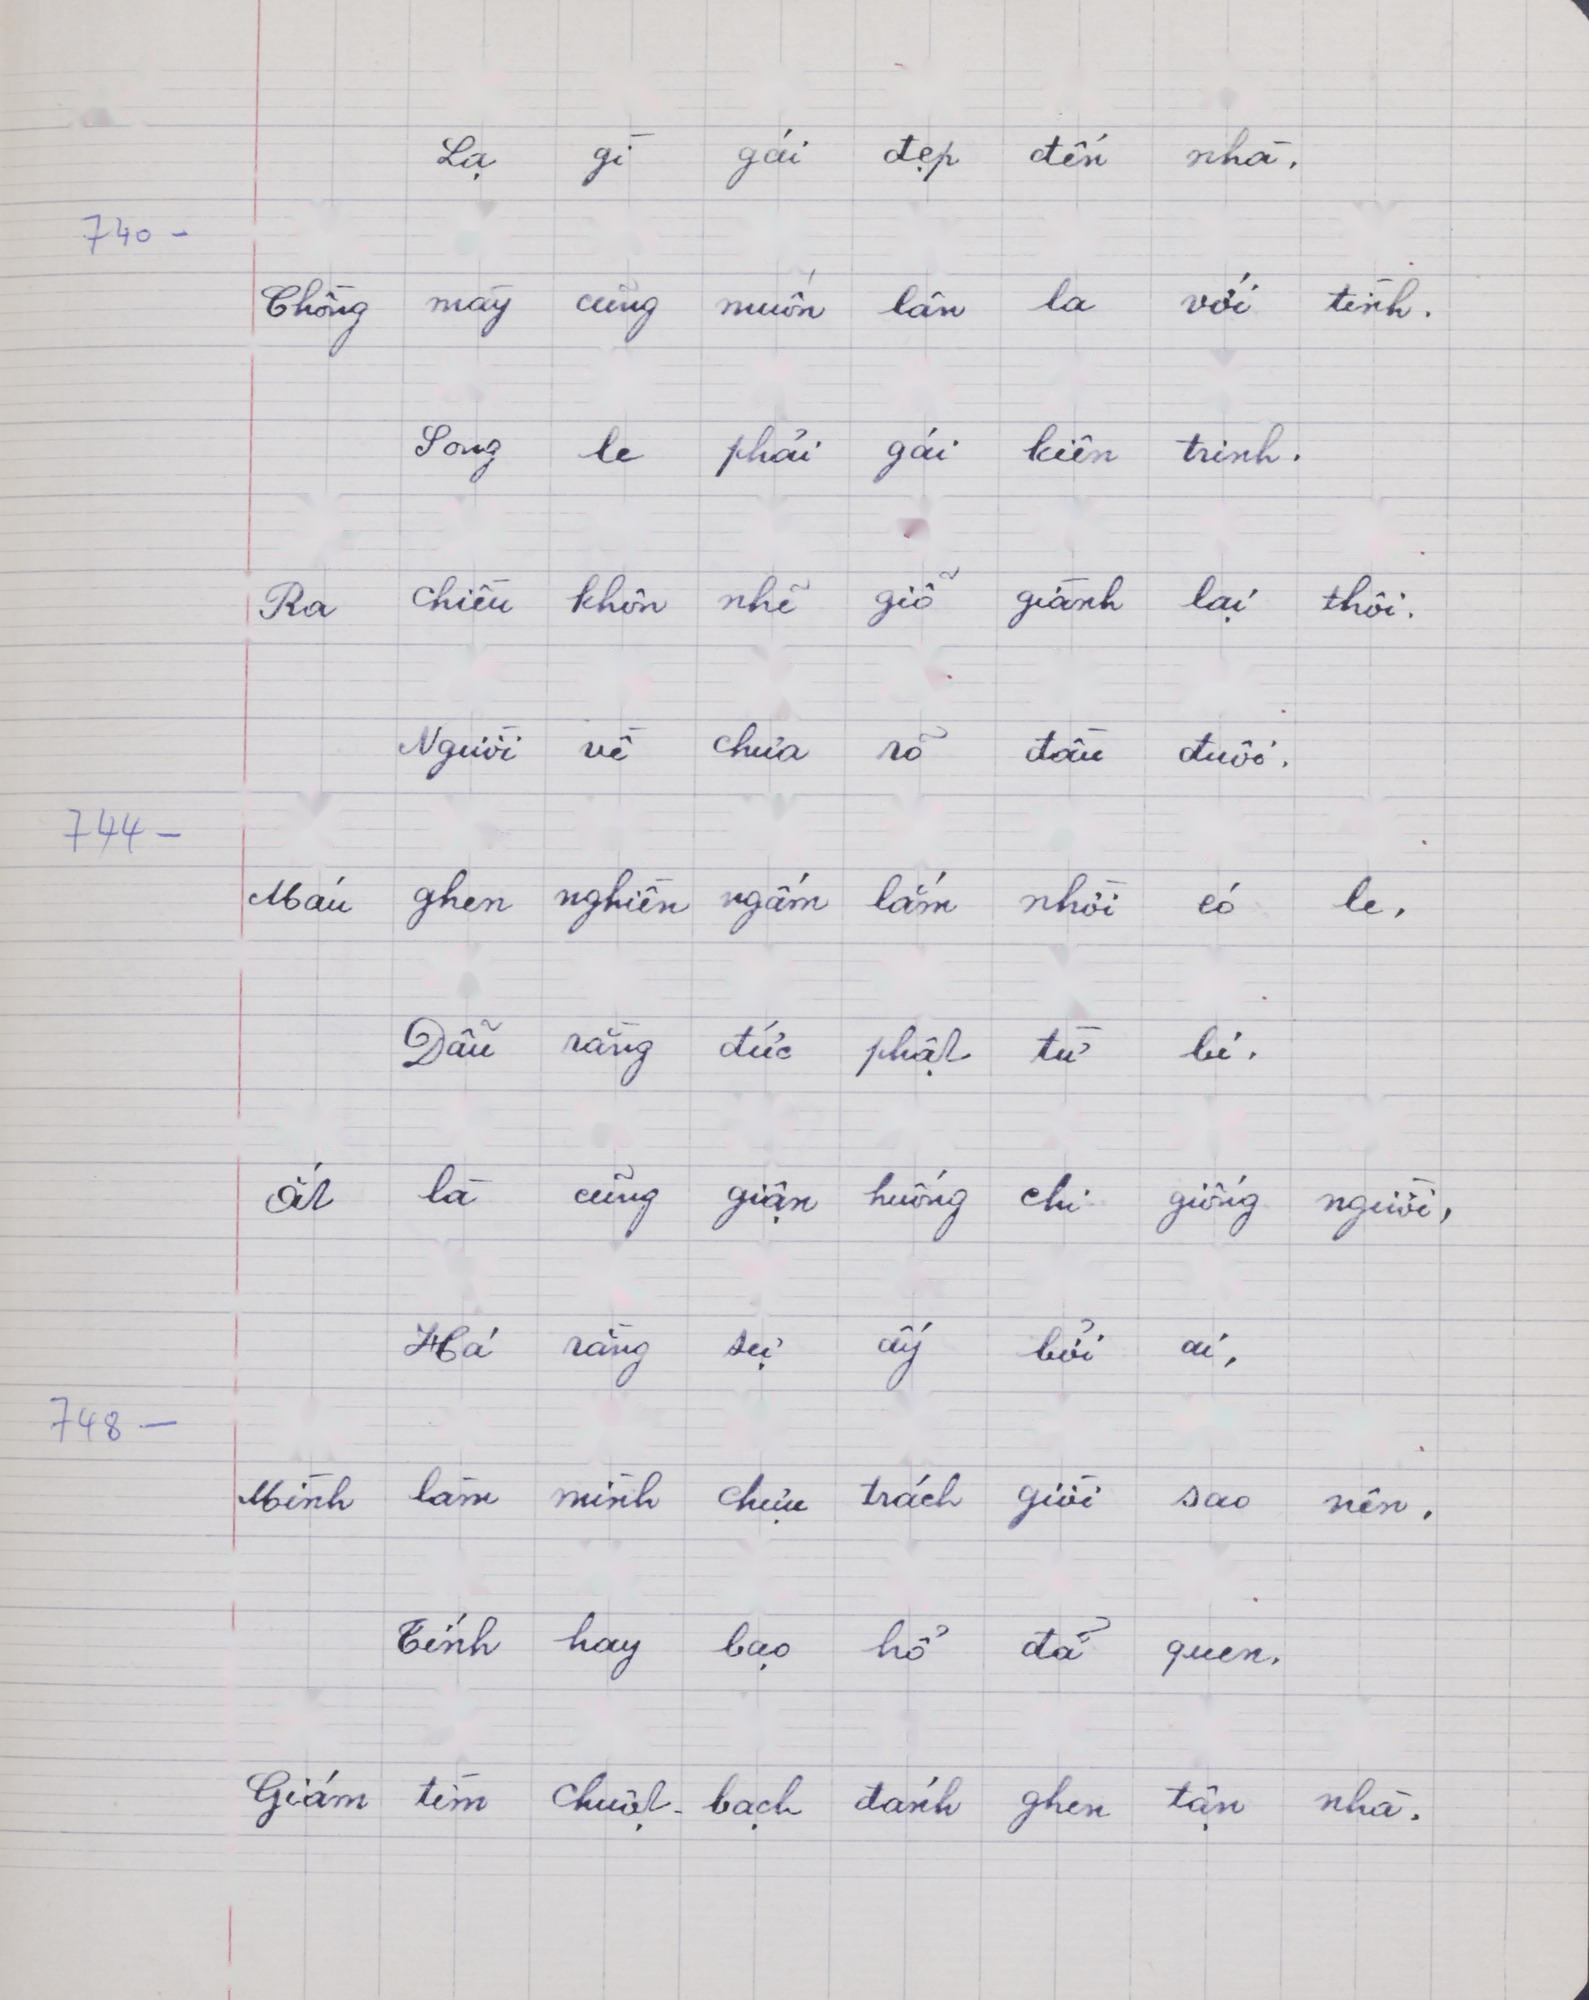 Lạ gì gái đẹp đến nhà.
740 -
Chồng mày cũng muốn lân la với tình.
Song le phải gái kiên trinh.
Ra chiều khôn nhẽ giỗ giành lại thôi.
Người về chưa rõ đầu đuôi.
744 -
Máu ghen nghiến ngấm lắm nhời éo le,
Dẫu rằng đức phật từ bi.
Ắt là cũng giận huống chi giống người,
Há rằng sự ấy bởi ai,
748 -
Mình làm mình chịu trách giời sao nên.
Tính hay bạo hổ đả quen.
Giám tìm chuột-bạch đánh ghen tận nhà.